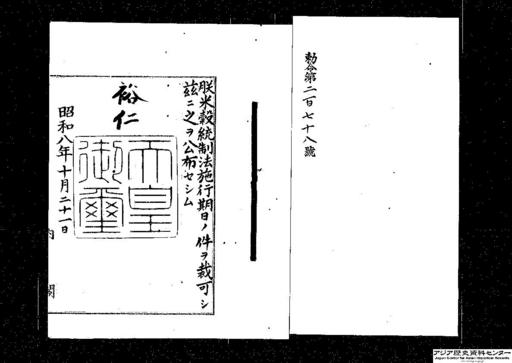 勅令第二百七十八號
朕米穀統制法施行期日ノ件ヲ裁可シ
茲ニ之ヲ公布セシム
裕仁
天皇
御璽
昭和八年十月二十一日
内閣
アジア歴史資料センター
Japan Center for Asian Historical Records